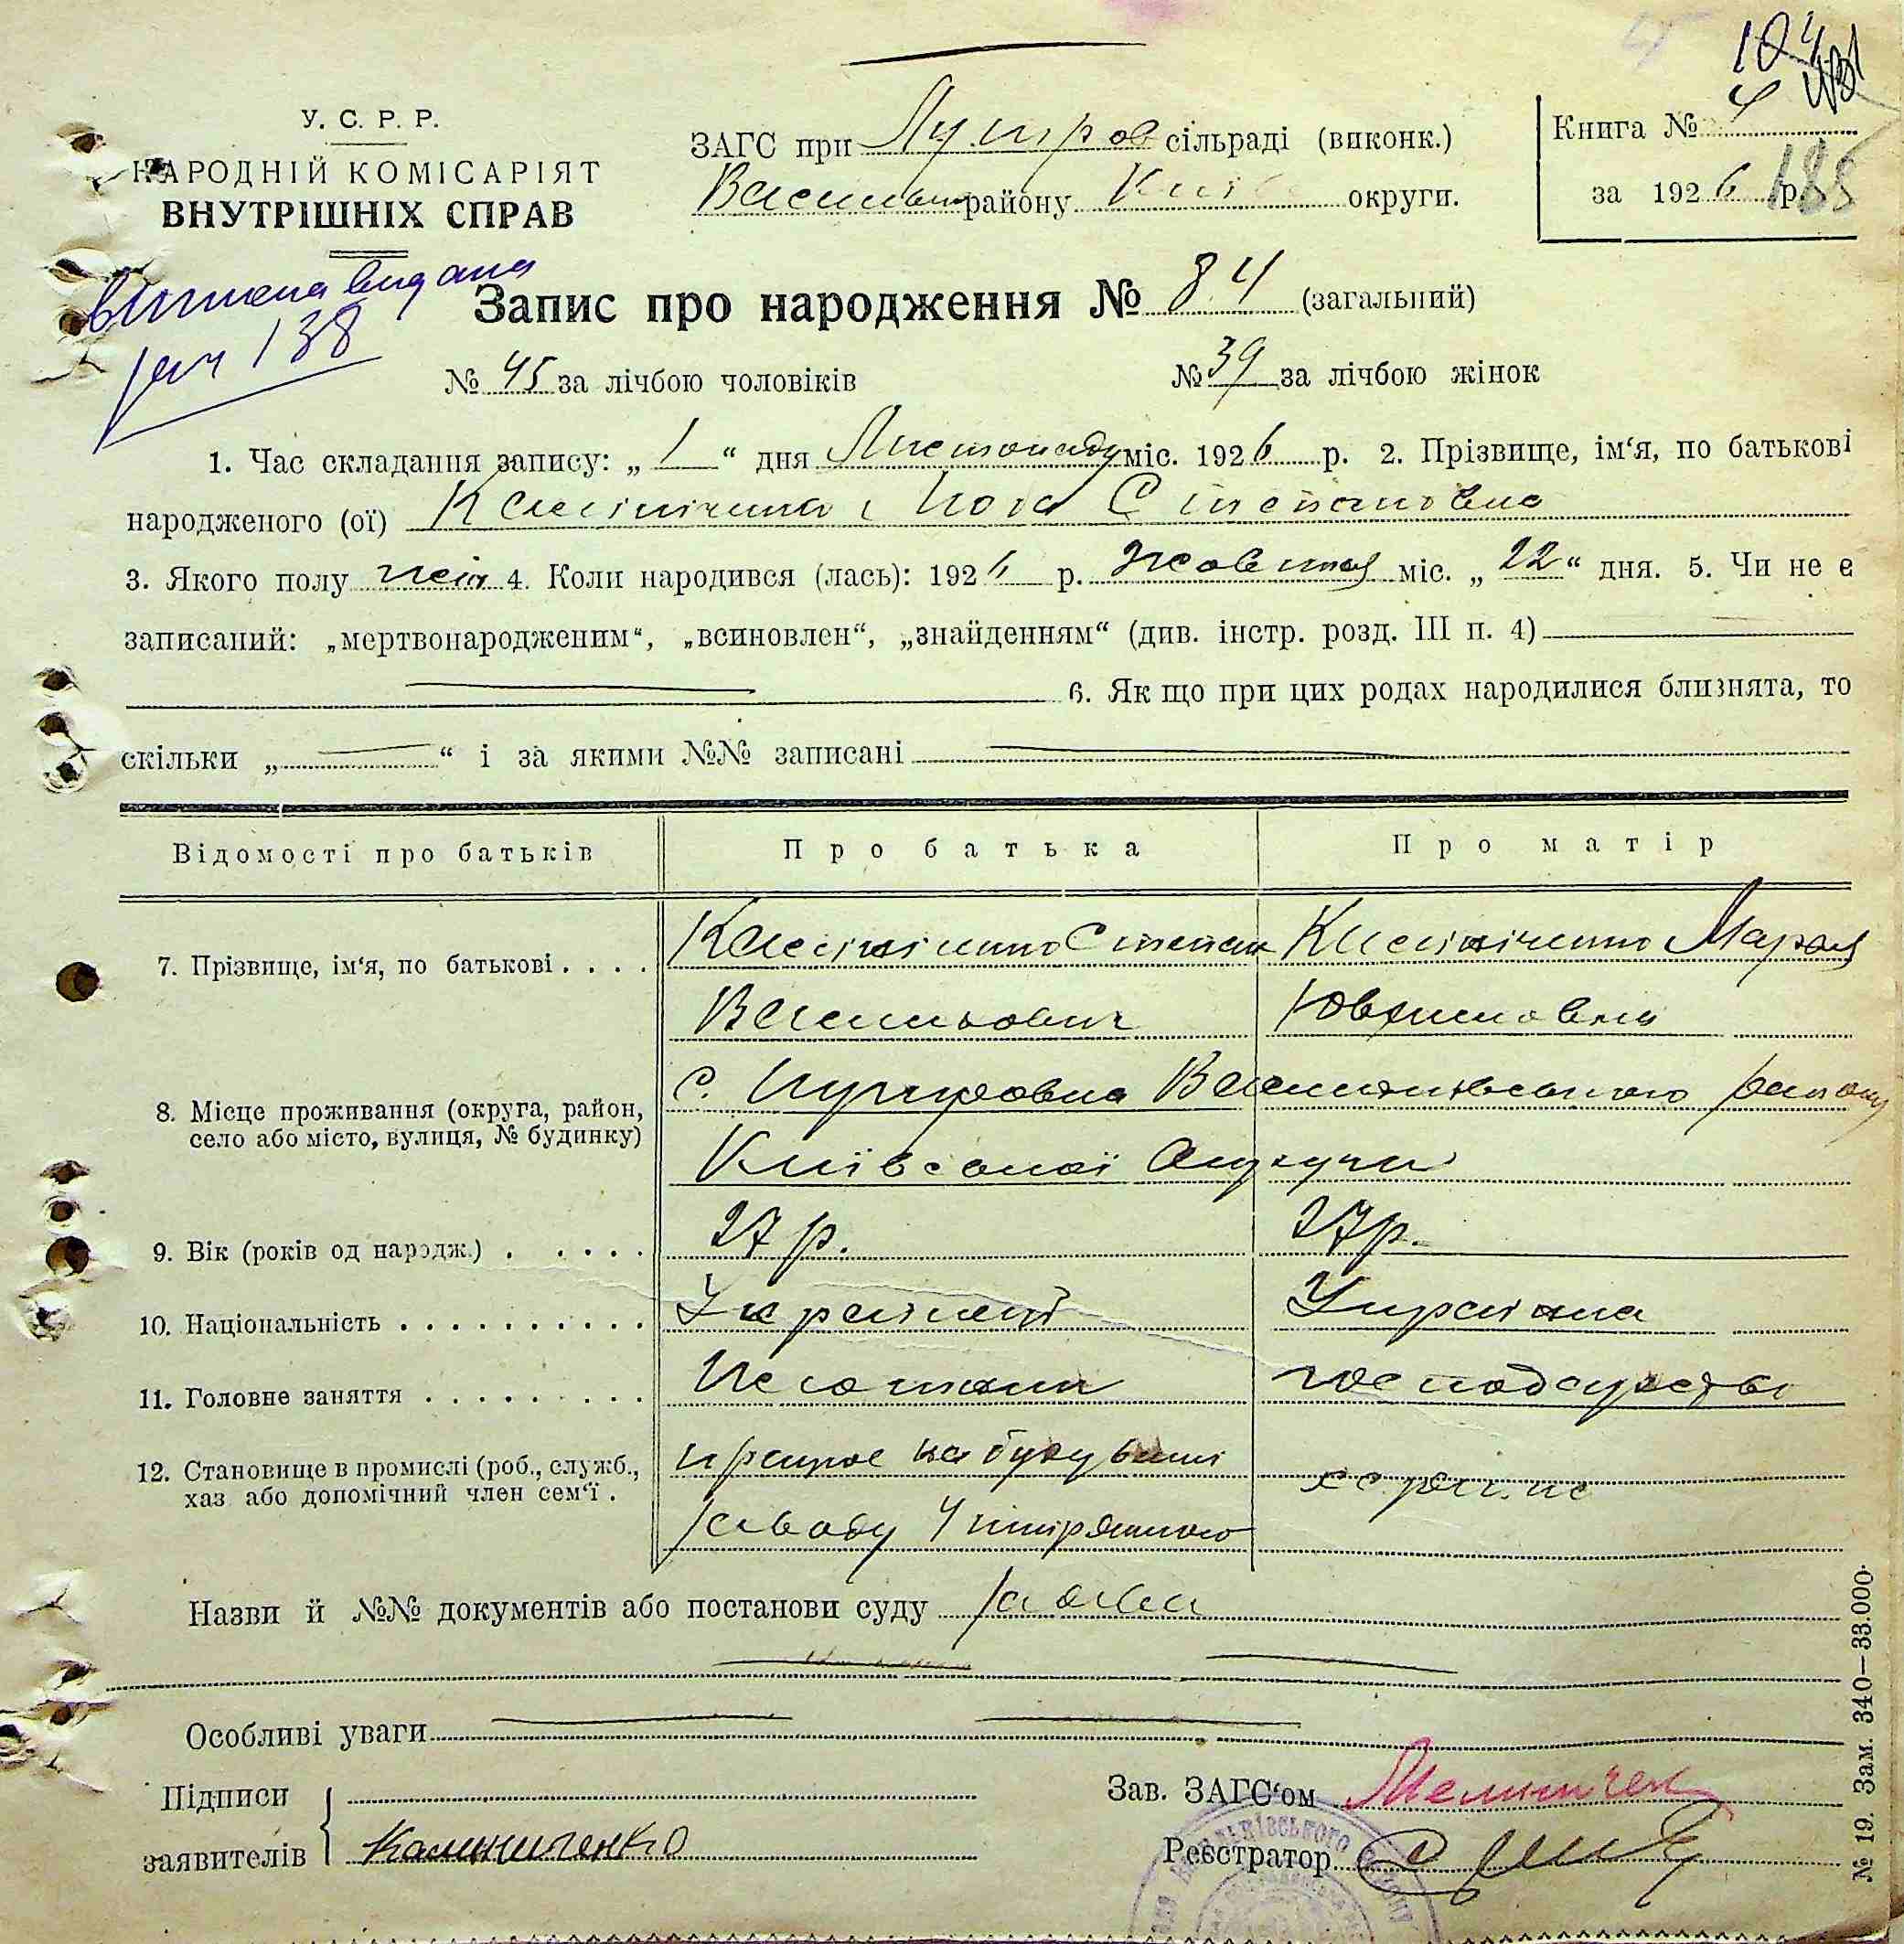 У. С. Р. Р.
НАРОДНІЙ КОМІСАРІЯТ
ВНУТРІШНІХ СПРАВ
ЗАГС при Путров сільраді (виконк.)
району Київ округи.
Книга № 4
за 1926 р.
185
виписка видана
138
Запис про народження № 84 (загальний)
№ 45 за лічбою чоловіків № 39 за лічбою жінок
1. Час складання запису: „ 1 “ дня Листопаду міс. 1926 р. 2. Прізвище, ім‘я, по батькові
народженого (ої) Степановна
3. Якого полу жін 4. Коли народився (лась): 1926 р. Жовтня міс. „ 22 “ дня. 5. Чи не є
записаний: „мертвонародженим“, „всиновлен“, „знайденням“ (див. інстр. розд. III п. 4)
6. Як що при цих родах народилися близнята, то
скільки „ “ і за якими №№ записані
Відомості про батьків Про батька Про матір
7. Прізвище, ім‘я, по батькові Калініченко Степан Калініченко Марія
Васильович
8. Місце проживання (округа, район, с. Путровка Васильківського району
село або місто, вулиця, № будинку) Київської Округи
9. Вік (років од народж.) 27 р. 27 р.
10. Національність Українець Українка
11. Головне заняття
12. Становище в промислі (роб., служб., працює на будуванні
хаз або допомічний член сем‘ї . заводу
Назви й №№ документів або постанови суду
Особливі уваги
Підписи
заявителів Калиниченко
Зав. ЗАГС‘ом
Реєстратор
№ 19. Зам. 340—33.000.